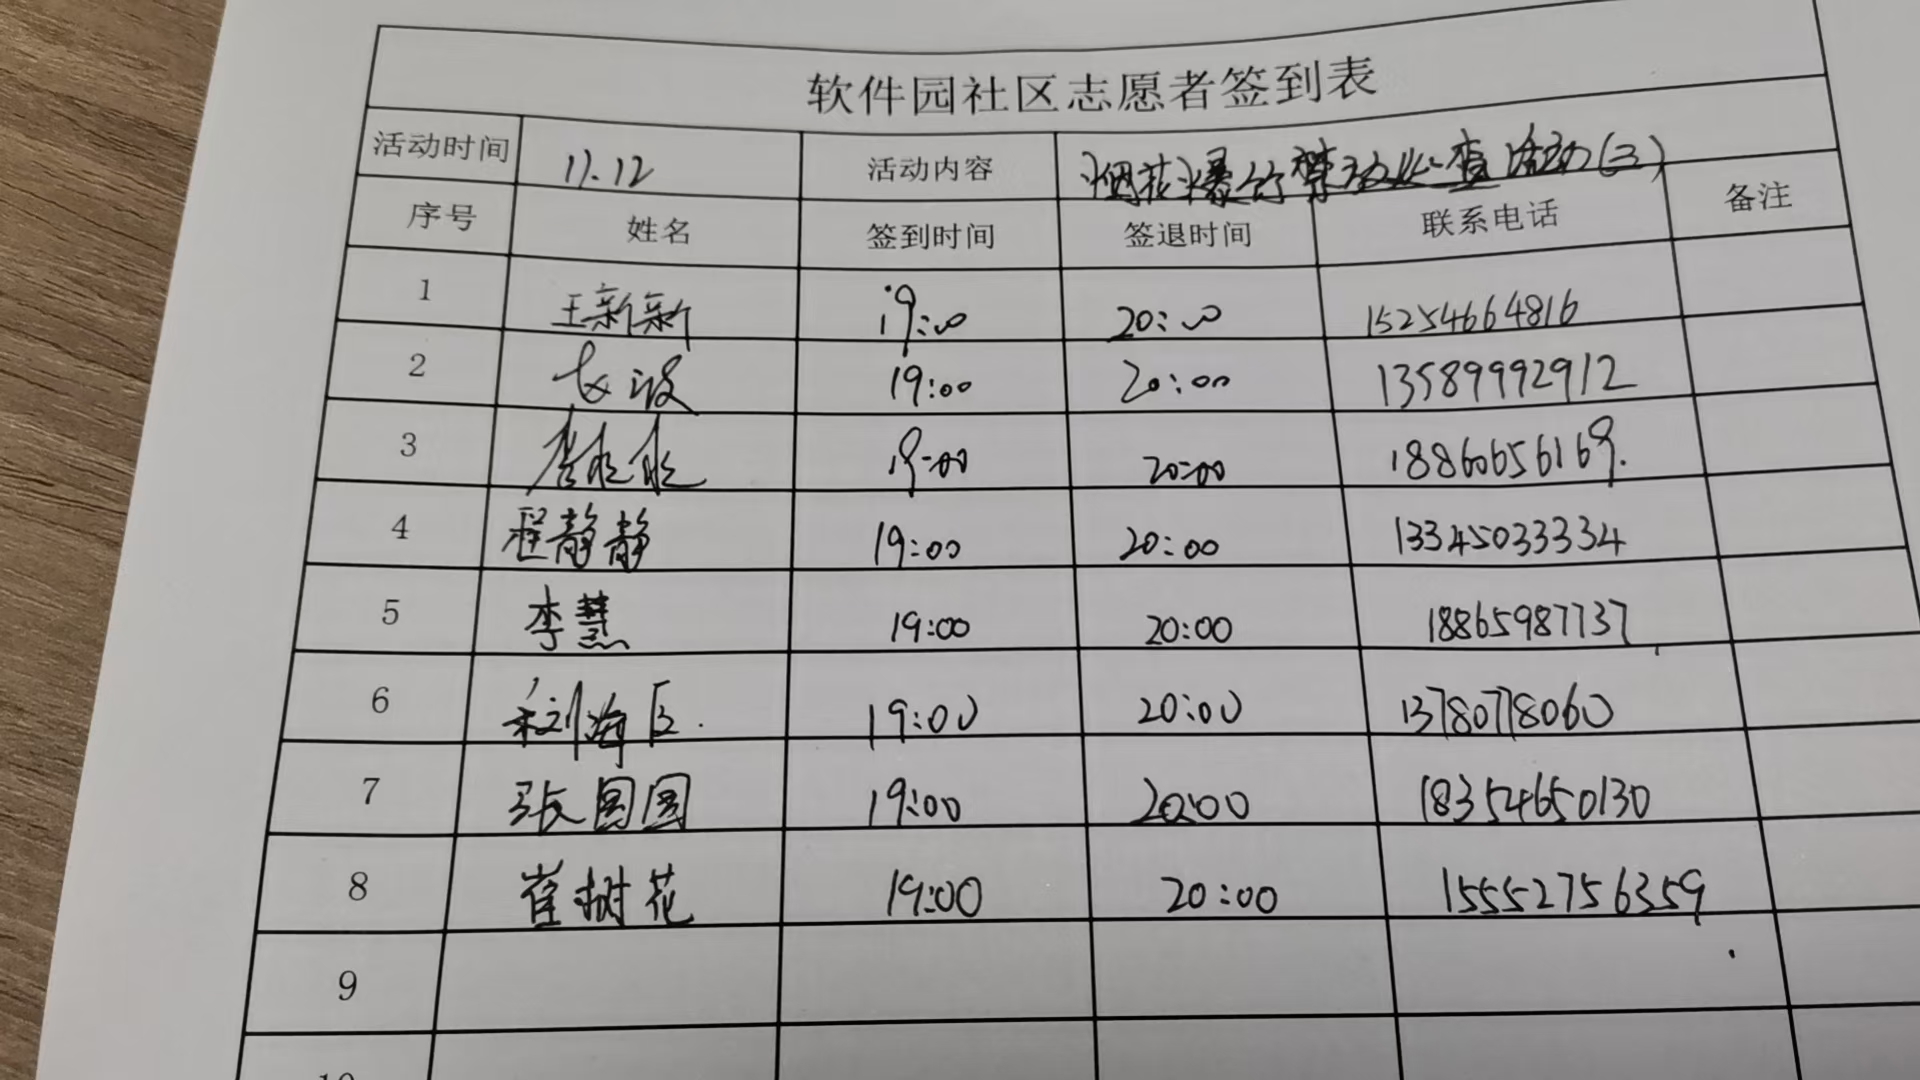 软件园社区志愿者签到表
活动时间 11.12 活动内容 烟花爆竹禁放 查活动(三)
序号 姓名 签到时间 签退时间 联系电话 备注
1 王新新 19:00 20:00 15254664816
2 19:00 20:00 13589992912
3 19:00 20:00 18860656169.
4 程静静 19:00 20:00 13345033334
5 李慧 19:00 20:00 18865987737
6 刘海 19:00 20:00 13780778060
7 张圆圆 19:00 20:00 18354650130
8 崔树花 19:00 20:00 15552756359
9
10